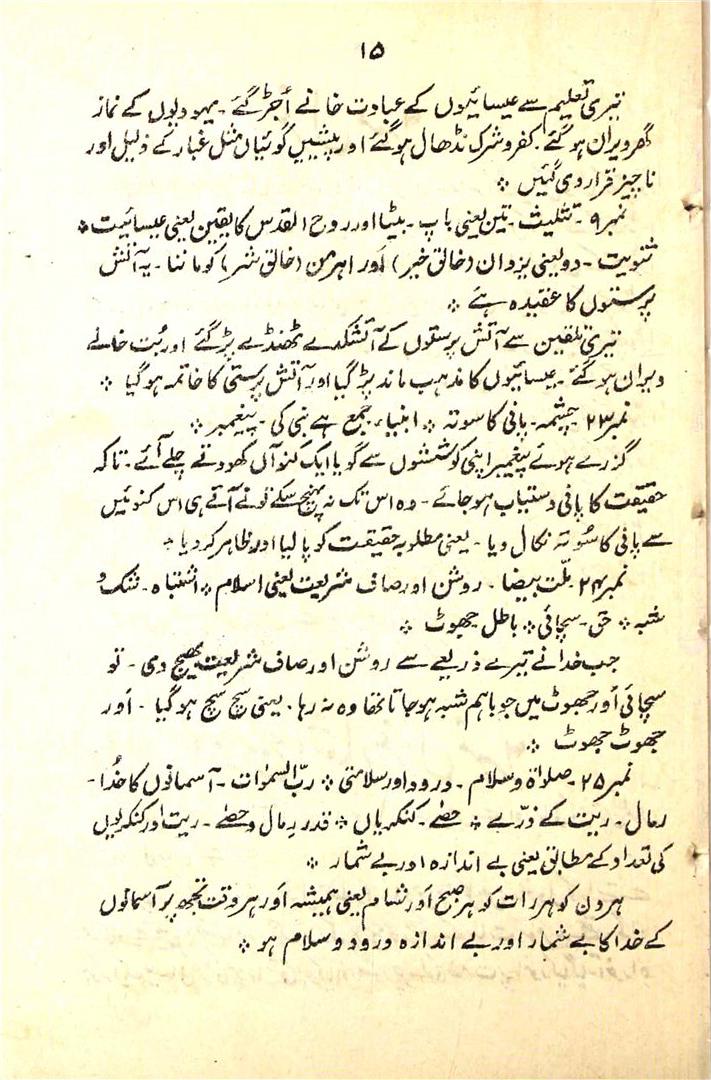 ۱۵
تیری تعلیم سے عیسائیوں کے عبادت خانے اُجڑ گئے۔ یہودیوں کے نماز
گھر ویران ہو گئے۔ کفر و شرک نڈھال ہو گئے اور پیشیں گوئیاں مثل غبار کے ذلیل اور
ناچیز قرار دی گئیں ⁘
نمبر ۹۔ تثلیث۔ تین یعنی باپ۔ بیٹا اور روح القدس کا یقین یعنی عیسائیت ⁘
ثنویت۔ دو یعنی یزدان (خالق خیر) اور اہرمن (خالق شر) کو ماننا۔ یہ آتش
پرستوں کا عقیدہ ہے ⁘
تیری تلقین سے آتش پرستوں کے آتشکدے ٹھنڈے پڑ گئے اور بُت خانے
ویران ہو گئے۔ عیسائیوں کا مذہب ماند پڑ گیا اور آتش پرستی کا خاتمہ ہو گیا ⁘
نمبر ۲۳۔ چشمہ۔ پانی کا سوتہ ⁘ انبیاء۔ جمع ہے نبی کی۔ پیغمبر ⁘
گزرے ہوئے پیغمبر اپنی کوششوں سے گویا ایک کنوآں کھودتے چلے آئے۔ تاکہ
حقیقت کا پانی دستیاب ہو جائے۔ وہ اس تک نہ پہنچ سکے تونے آتے ہی اس کنوئیں
سے پانی کا سُوتہ نکال دیا۔ یعنی مطلوبہ حقیقت کو پا لیا اور ظاہر کر دیا ⁘
نمبر ۲۴۔ ملّت بیضا۔ روشن اور صاف شریعت یعنی اسلام ⁘ اشتباہ۔ شک و
شبہ ⁘ حق۔ سچائی ⁘ باطل جھوٹ ⁘
جب خدا نے تیرے ذریعے سے روشن اور صاف شریعت بھیج دی۔ تو
سچائی اَور جھوٹ میں جو باہم شبہ ہو جاتا تھا وہ نہ رہا۔ یعنی سچ سچ ہو گیا۔ اَور
جھوٹ جھوٹ ⁘
نمبر ۲۵۔ صلواۃ و سلام۔ درود اور سلامتی ⁘ ربّ السمٰوات۔ آسمانوں کا خُدا۔
رمال۔ ریت کے ذرّے ⁘ حصٰے۔ کنکریاں ⁘ قدر رمال و حصٰے۔ ریت اور کنکریوں
کی تعداد کے مطابق یعنی بے اندازہ اور بے شمار ⁘
ہر دن کو ہر رات کو ہر صبح اَور شام یعنی ہمیشہ اَور ہر وقت تجھ پر آسمانوں
کے خدا کا بے شمار اور بے اندازہ درود و سلام ہو ⁘